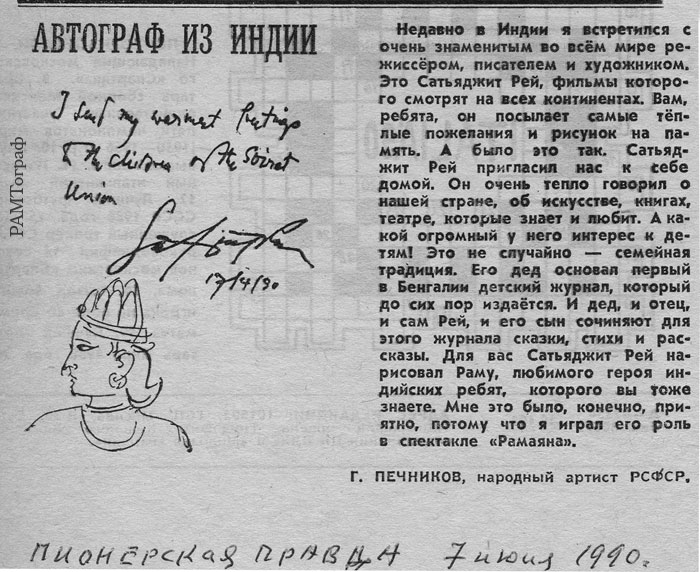 АВТОГРАФ ИЗ ИНДИИ
I send my warmest greetings
to the children of the Soviet
Union
17/4/90
РАМТограф
Недавно в Индии я встретился с
очень знаменитым во всём мире ре-
жиссёром, писателем и художником.
Это Сатьяджит Рей, фильмы которо-
го смотрят на всех континентах. Вам,
ребята, он посылает самые тёп-
лые пожелания и рисунок на па-
мять. А было это так. Сатьяд-
жит Рей пригласил нас к себе
домой. Он очень тепло говорил о
нашей стране, об искусстве, книгах,
театре, которые знает и любит. А ка-
кой огромный у него интерес к де-
тям! Это не случайно — семейная
традиция. Его дед основал первый
в Бенгалии детский журнал, который
до сих пор издаётся. И дед, и отец,
и сам Рей, и его сын сочиняют для
этого журнала сказки, стихи и рас-
сказы. Для вас Сатьяджит Рей на-
рисовал Раму, любимого героя ин-
дийских ребят, которого вы тоже
знаете. Мне это было, конечно, при-
ятно, потому что я играл его роль
в спектакле «Рамаяна».
Г. ПЕЧНИКОВ, народный артист РСФСР.
ПИОНЕРСКАЯ ПРАВДА 7 июня 1990г.